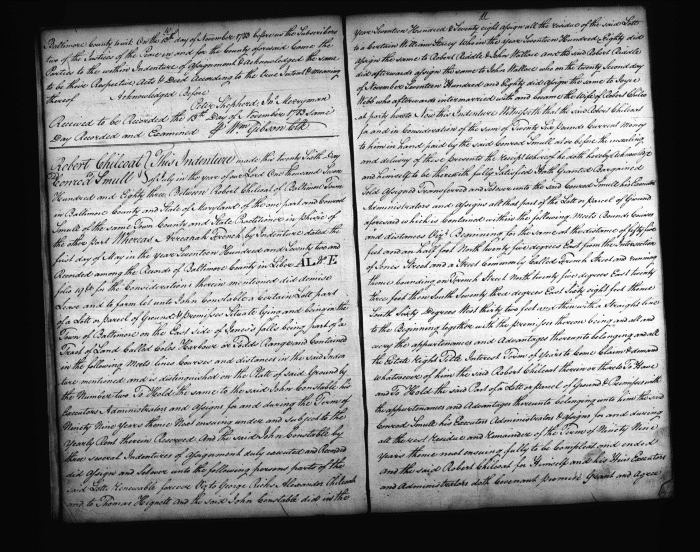 Baltimore County to wit. On the 13th day of November 1783 before us the Subscribers
two of the Justices of the Peace in and for the County aforesaid Came the
Parties to the within Indenture of Assignment & Acknowledged the same
to be their Respective Acts & Deed According to the True Intent & meaning
thereof Acknowledged Before
Peter Shepherd, Jno Merryman
Received to be Recorded the 13th Day of November 1783 Same
Day Recorded and Examined Wm Gibson Clk
Robert Chilcoat This Indenture made this twenty Sixth Day
Conrod Small of July in the year of our Lord One thousand Seven
Hundred and Eighty three Between Robert Chilcoat of Baltimore Town
in Baltimore County and State of Maryland of the one part and Conrod
Small of the same Town County and State of
the other part Whereas French by Indenture dated the
first day of May in the year Seventeen Hundred and Seventy two and
Recorded among the Records of Baltimore County in Liber AL No E
folio 196 for the Considerations therein mentioned did demise
Lease and to farm let unto John Constable a Certain Lott part
of a Lott or parcel of Ground & premises Situate lying and being in the
Town of Baltimore on the East Side of Jones's falls being part of a
Tract of Land Called Coles Harbour or Todds Range and Contained
in the following Meets lines Courses and distances in the said Inden
ture mentioned and is distinguished on the Plat of said Ground by
the Number two To Hold the same to the said John Constable his
Executors Administrators and Assigns for and during the Term of
Ninety Nine years thence Next ensuing under and Subject to the
Yearly Rent therein Reserved And the said John Constable by
three several Indentures of Assignment duly executed and Recorded
did Assign and Set over unto the following persons parts of the
said Lotts Renewable forever Viz to George Alexander Chilcoat
and to Thomas Hignott and the said John Constable did in the
11
Year Seventeen Hundred & Seventy eight assign all the residue of the said Lott
to a Certain William Who in the year Seventeen Hundred & Eighty did
Assign the same to Robert Riddle & John Wallace and the said Robert Riddle
did afterwards assign the same to John Wallace who on the twenty Second day
of November Seventeen Hundred and Eighty did Assign the same to Joyce
Webb who afterwards intermarried with and became the Wife of Robert Chilcoat
party hereto Now this Indenture Witnesseth that the said Robert Chilcoat
for and in Consideration of the Sum of Twenty Six Pounds Current Money
to him in hand paid by the said Conrod Small at or before the ensealing
and delivery of these presents the Receipt whereof he doth hereby Acknowledge
and himself to be therewith fully Satisfied Hath Granted Bargained
Sold Assigned Transferred and Set over unto the said Conrod Small his Executors
Administrators and Assigns all that part of the Lott or parcel of Ground
aforesaid which is Contained within the following Meets Bounds Courses
and distances Viz. Beginning for the Same at the distance of fifty five
feet and an half foot North twenty five degrees East from the Intersection
of Jones Street and a Street Commonly Called French Street and running
thence bounding on French Street North twenty five degrees East twenty
three feet then South Seventy three degrees East Sixty eight feet thence
South Sixty Degrees West thirty two feet and then with a Straight line
to the Beginning together with the premises thereon being and all and
every the appurtenances and Advantages thereunto belonging and all
the Estate Right Title Interest Term of Years to Come Claim & demand
whatsoever of him the said Robert Chilcoat therein or thereto To Have
and To Hold the said Part of a Lott or parcel of Ground & Premises with
the appurtenances and Advantages thereunto belonging unto him the said
Conrod Small his Executors Administrators & Assigns for and during
all the rest Residue and remainder of the Term of Ninety Nine
years thence next ensuing fully to be Compleat and ended
And the said Robert Chilcoat for Himself and his Heirs Executors
and Administrators doth Covenant promise Grant and Agree